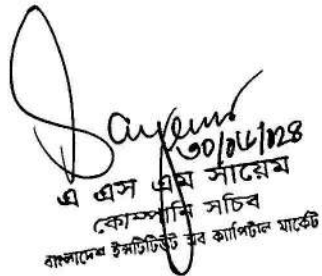 Sayem
৩০/০৬/২০২৪
এ এস এম সায়েম
কোম্পানি সচিব
বাংলাদেশ ইন্সটিটিউট অব ক্যাপিটাল মার্কেট